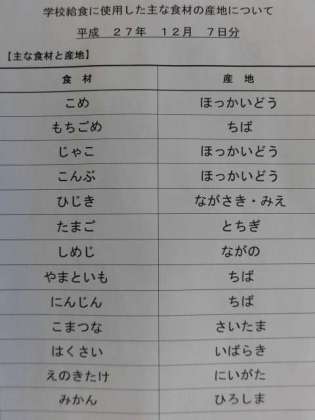 学校給食に使用した主な食材の産地について
平成 27年 12月 7日分
【主な食材と産地】
食 材 産 地
こめ ほっかいどう
もちごめ ちば
じゃこ ほっかいどう
こんぶ ほっかいどう
ひじき ながさき・みえ
たまご とちぎ
しめじ ながの
やまといも ちば
にんじん ちば
こまつな さいたま
はくさい いばらき
えのきたけ にいがた
みかん ひろしま